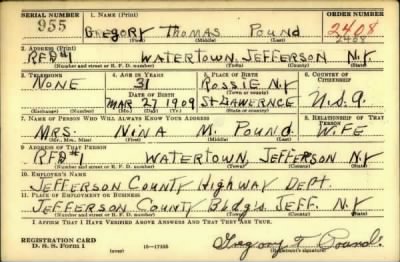 SERIAL NUMBER 1. NAME (Print) ORDER NUMBER
955 GREGORY THOMAS POUND 2408
(First) (Middle) (Last) 2408
2. ADDRESS (Print)
RFD#1 WATERTOWN, JEFFERSON N.Y
(Number and street or R. F. D. number) (Town) (County) (State)
3. TELEPHONE 4. AGE IN YEARS 5. PLACE OF BIRTH 6. COUNTRY OF CITIZENSHIP
NONE 31 ROSSIE N.Y
DATE OF BIRTH (Town or county)
MAR 27 1909 ST LAWERNCE U.S.A.
(Exchange) (Number) (Mo.) (Day) (Yr.) (State or country)
7. NAME OF PERSON WHO WILL ALWAYS KNOW YOUR ADDRESS 8. RELATIONSHIP OF THAT PERSON
MRS. NINA M. POUND WIFE
(Mr., Mrs., Miss) (First) (Middle) (Last)
9. ADDRESS OF THAT PERSON
RFD#1 WATERTOWN, JEFFERSON N.Y
(Number and street or R. F. D. number) (Town) (County) (State)
10. EMPLOYER'S NAME
JEFFERSON COUNTY HIGHWAY DEPT.
11. PLACE OF EMPLOYMENT OR BUSINESS
JEFFERSON COUNTY BLDGS. JEFF. N.Y
(Number and street or R. F. D. number) (Town) (County) (State)
I AFFIRM THAT I HAVE VERIFIED ABOVE ANSWERS AND THAT THEY ARE TRUE.
REGISTRATION CARD
D. S. S. Form 1 (over) 16—17105 Gregory T. Pound.
(Registrant's signature)